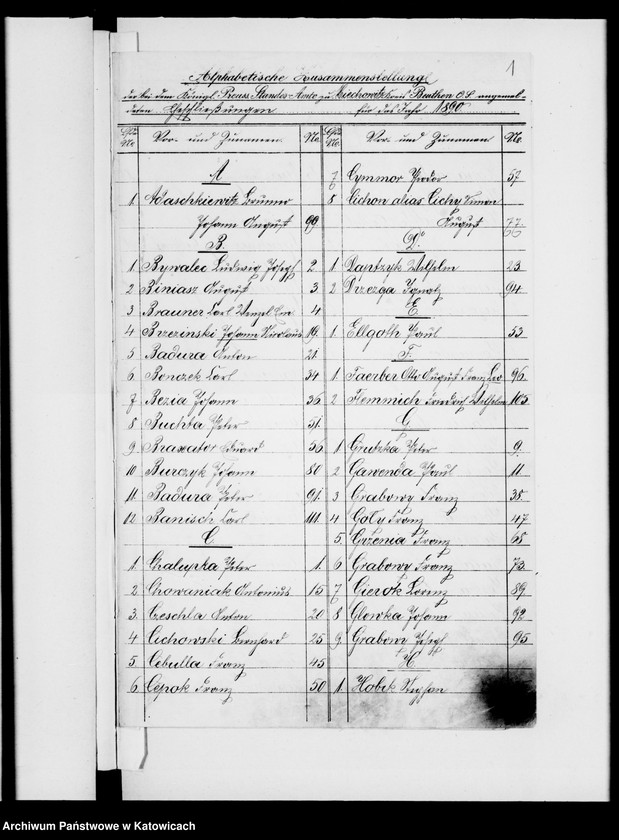 1
Alphabetische Zusammenstellung
der bei dem Königl. Preuss. Standes-Amte zu Miechowitz Kreis Beuthen O.S. angemel-
deten Eheschließungen für das Jahr 1890
Lfde No. Vor- und Zunamen No.
A
1. Adaschkiewitz Brunno
Johann August 99
B.
1 Bywalec Ludwig Josef 2.
2 Biniasz August 3
3 Brauner Carl 4
4 Brzezinski Johann Nicolaus 19.
5 Badura Anton 21.
6. Bonczek Carl 34
7 Bezia Johann 36
8 Buchta Peter 51.
9 Braxator Eduard 56
10 Burczyk Johann 80
11 Badura Peter 91.
12. Banisch Carl 111.
C
1 Chalupka Peter 1.
2 Chowaniak Antonius 15
3. Czeschla Anton 20
4 Cichowski Bernhard 25
5. Cebulla Franz 45
6. Cepok Franz 50
Lfde No. Vor- und Zunamen No.
7 Cymmor 57
8 Cichon alias Cichy
August 77
D.
1 Daptzyk Wilhelm 23
2 Drzezga Ignatz 94.
E
1. Ellgoth Paul 53
F.
1. Faerber Otto August Franz Leo 96.
2 Flemmich Friedrich Wilhelm 105
G
1 Grutzka Peter 9.
2 Gawenda Paul 11
3 Grabowy Franz 38.
4 Goly Franz 47
5. Franz 68
6 Grabowy Franz 73.
7 Cierok Lorenz 89
8 Glowka Johann 92
9 Grabowy Josef 95
H
1. Habik
Archiwum Państwowe w Katowicach